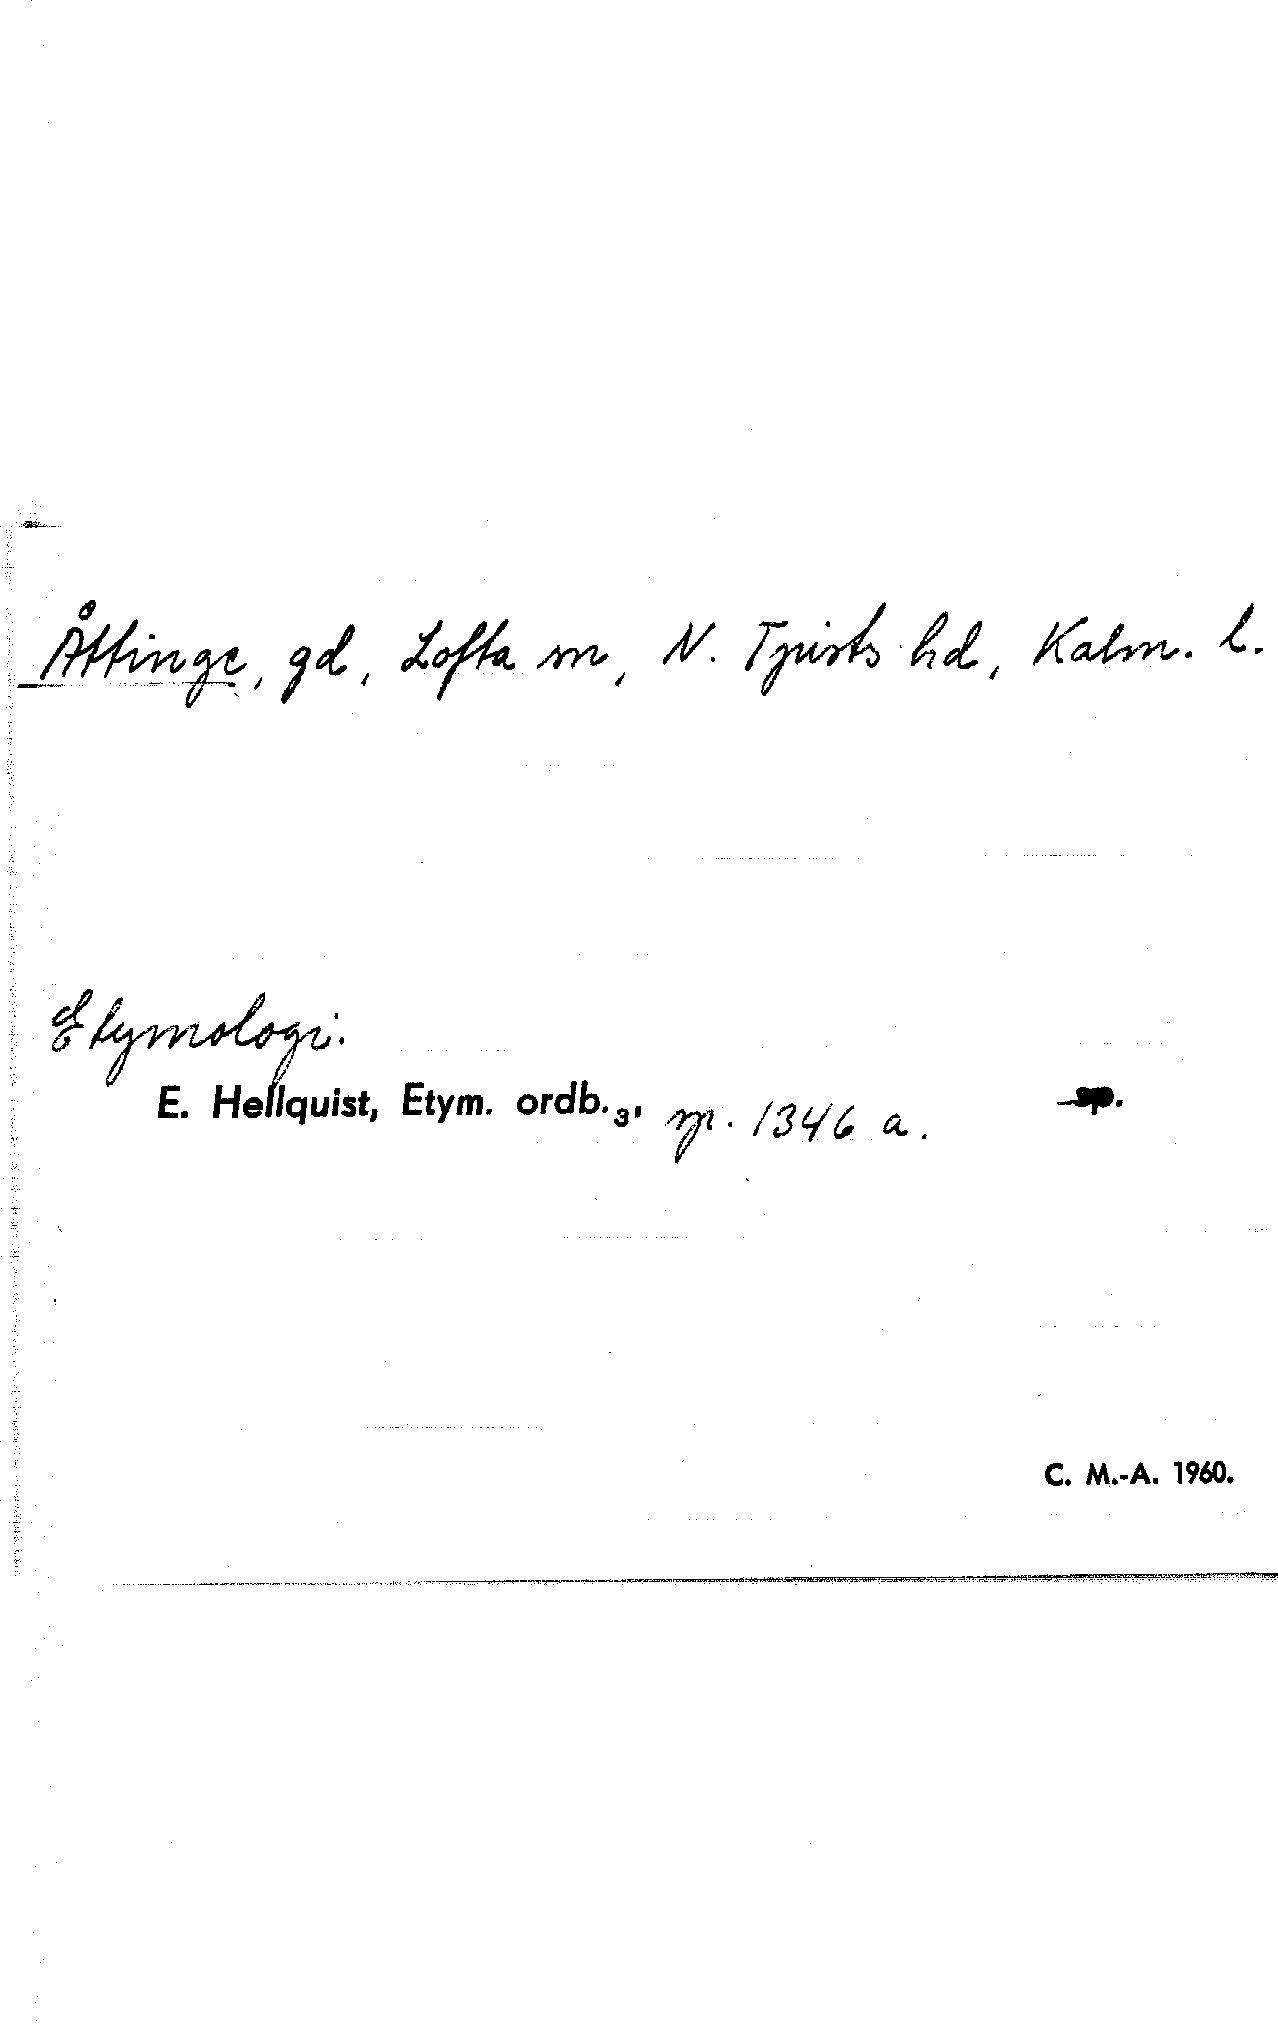 Åttinge, gd, Lofta sn, N. Tjusts hd, Kalm. l.
Etymologi.
E. Hellquist, Etym. ordb.₃, sp. 1346 a. sp.
C. M.-A. 1960.